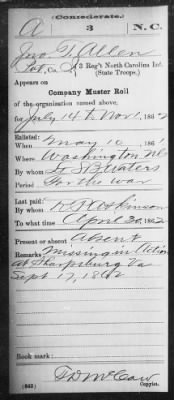 (Confederate.)
A 3 N.C.
Jno. T. Allen
Pvt, Co. I, 3 Reg't North Carolina Inf.
(State Troops.)
Appears on
Company Muster Roll
of the organization named above,
for July 14 to Nov 1, 1862
Enlisted:
When May 10, 1861
Where Washington NC
By whom Lt S B Waters
Period For the war
Last paid:
By whom
To what time April 30, 1862
Present or absent Absent
Remarks: Missing in Action
at Sharpsburg Va
Sept 17, 1862
Book mark:
(642) T D McCaw
Copyist.